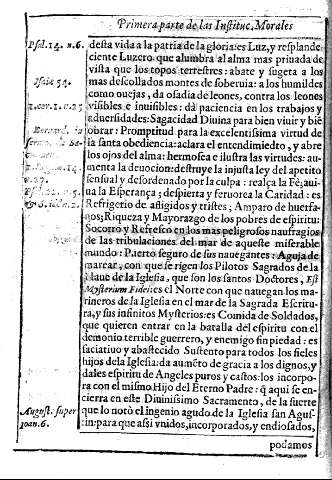 Primera parte de las Instituc. Morales
Psal. 14. n. 6.
desta vida a la patria de la gloria: es Luz, y resplande
ciente Luzero que alumbra al alma mas priuada de
vista que los topos terrestres: abate y sugeta a los
mas descollados montes de soberuia: a los humildes
como ouejas, da osadia de leones, contra los leones
visibles e inuisibles: da paciencia en los trabajos y
aduersidades: Sagacidad Diuina para bien viuir y biē
obrar: Promptitud para la excelentissima virtud de
la santa obediencia: aclara el entendimiēto, y abre
los ojos del alma: hermosea e ilustra las virtudes: au-
menta la deuocion: destruye la injusta ley del apetito
sensual y desordenado por la culpa: realça la Fè; aui
ua la Esperança; despierta y feruorea la Caridad: es
Refrigerio de afligidos y tristes; Amparo de huerfa-
nos; Riqueza y Mayorazgo de los pobres de espiritu:
Socorro y Refresco en los mas peligrosos naufragios
de las tribulaciones del mar de aqueste miserable
mundo: Puerto seguro de sus nauegantes: Aguja de
marear, con que se rigen los Pilotos Sagrados de la
Naue de la Iglesia, que son los santos Doctores, Est
Mysterium Fidei: es el Norte con que nauegan los ma-
rineros de la Iglesia en el mar de la Sagrada Escritu-
ra, y sus infinitos Mysterios: es Comida de Soldados,
que quieren entrar en la batalla del espiritu con el
demonio terrible guerrero, y enemigo sin piedad: es
saciatiuo y abastecido Sustento para todos los fieles
hijos de la Iglesia: da aumēto de gracia a los dignos, y
dales espiritu de Angeles puros y castos: los incorpo-
ra con el mismo Hijo del Eterno Padre: q̄ aqui se en-
cierra en este Diuinissimo Sacramento, de la suerte
que lo notò el ingenio agudo de la Iglesia san Agus-
tin: para que assi vnidos, incorporados, y endiosados,
podamos
Isaie 54.
August. super
Ioan. 6.